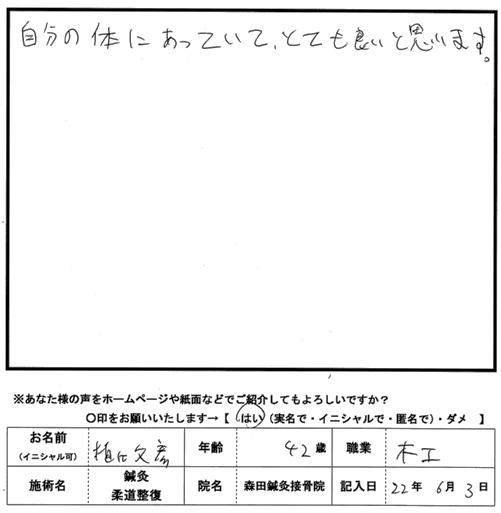 自分の体にあっていて、とても良いと思います。
※あなた様の声をホームページや紙面などでご紹介してもよろしいですか?
〇印をお願いいたします→【 はい (実名で・イニシャルで・匿名で)・ダメ 】
お名前 (イニシャル可) 文彦 年齢 42歳 職業 木工
施術名 鍼灸 柔道整復 院名 森田鍼灸接骨院 記入日 22年 6月 3日